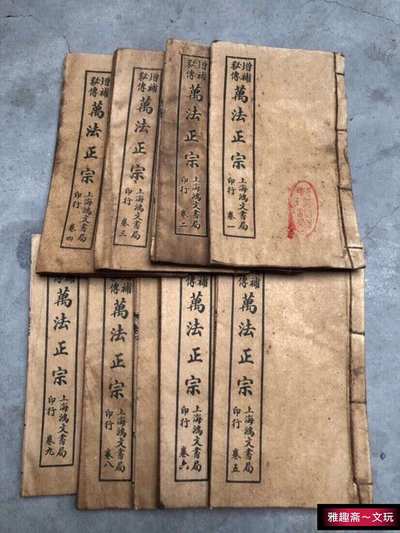 增補
秘傳
萬法正宗
上海鴻文書局
印行
卷一
增補
秘傳
萬法正宗
上海鴻文書局
印行
卷二
增補
秘傳
萬法正宗
上海鴻文書局
印行
卷三
增補
秘傳
萬法正宗
上海鴻文書局
印行
卷四
補
傳
萬法正宗
上海鴻文書局
印行
卷五
補
傳
萬法正宗
上海鴻文書局
印行
卷六
補
傳
萬法正宗
上海鴻文書局
印行
卷八
補
傳
萬法正宗
上海鴻文書局
印行
卷九
雅趣斋～文玩